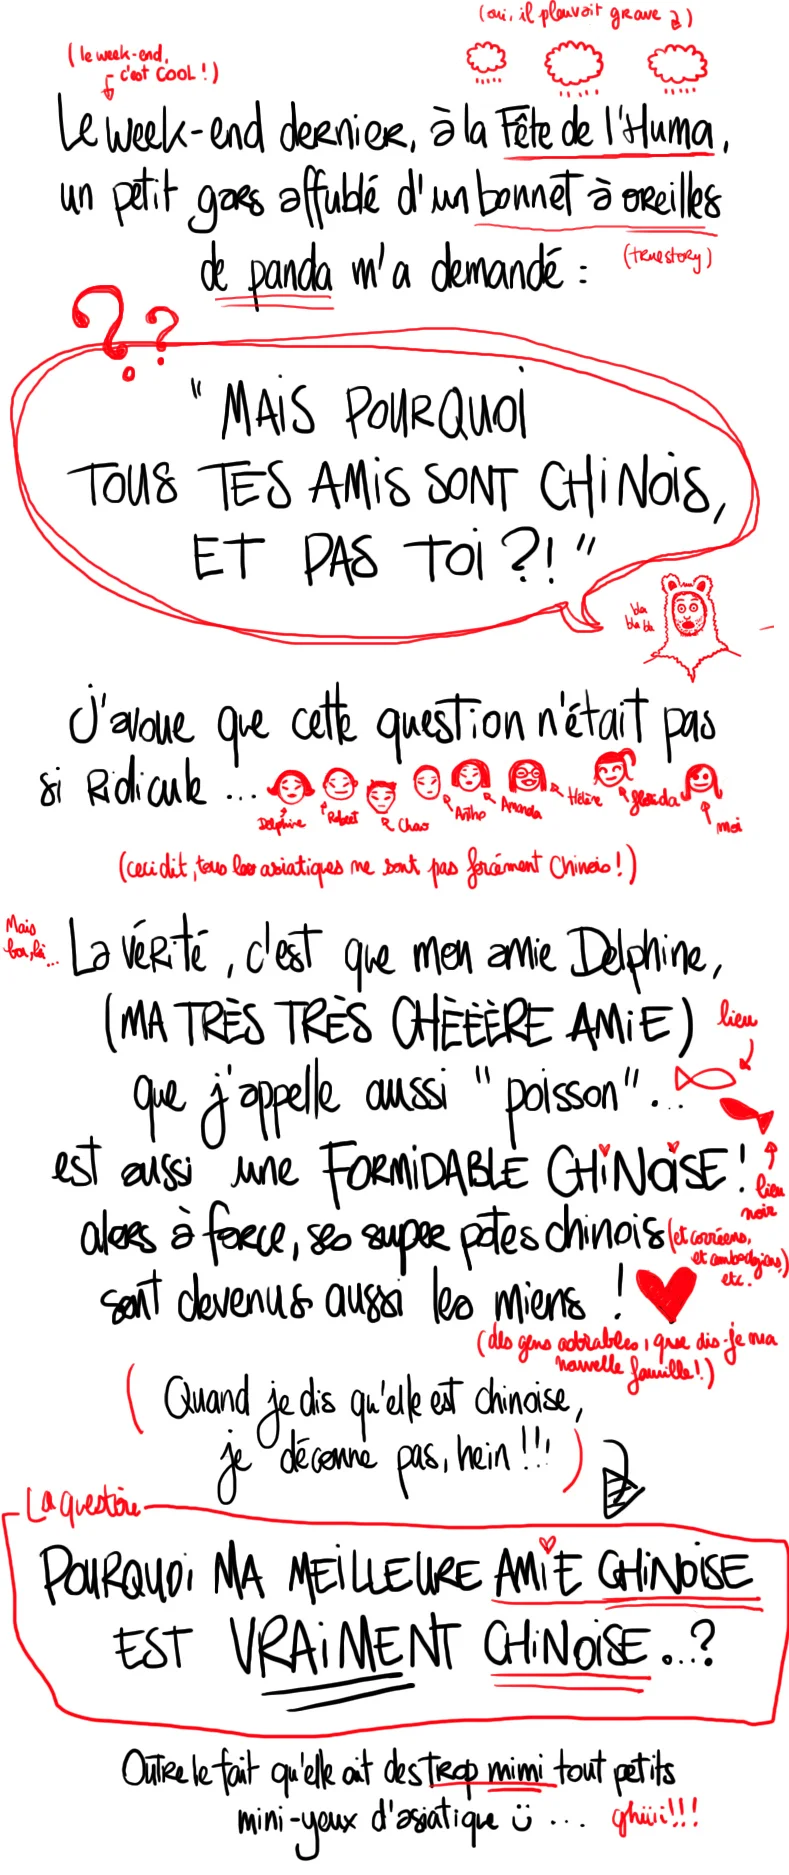 (oui, il pleuvait grave)
(le week-end,
c'est COOL !)
Le week-end dernier, à la Fête de l'Huma,
un petit gars affublé d'un bonnet à oreilles
de panda m'a demandé :
(true story)
? ?
"MAIS POURQUOI
TOUS TES AMIS SONT CHINOIS,
ET PAS TOI ?!"
bla
bla bla
J'avoue que cette question n'était pas
si Ridicule ...
Delphine
Robert
Chao
Antho
Amanda
Hélène
moi
(ceci dit, tous les asiatiques ne sont pas forcément Chinois !)
Mais
bon, là ...
La vérité, c'est que mon amie Delphine,
(MA TRÈS TRÈS CHÈÈÈRE AMIE)
lieu
que j'appelle aussi "poisson"...
est aussi une FORMIDABLE CHINOISE !
lieu
noir
alors à force, ses super potes chinois
(et coréens,
et cambodgiens,
etc.)
sont devenus aussi les miens !
(des gens adorables, que dis-je ma
nouvelle famille !)
(Quand je dis qu'elle est chinoise,
je déconne pas, hein !!!)
La question
POURQUOI MA MEILLEURE AMIE CHINOISE
EST VRAIMENT CHINOISE...?
Outre le fait qu'elle ait des trop mimi tout petits
mini-yeux d'asiatique ü ... ghiiii!!!